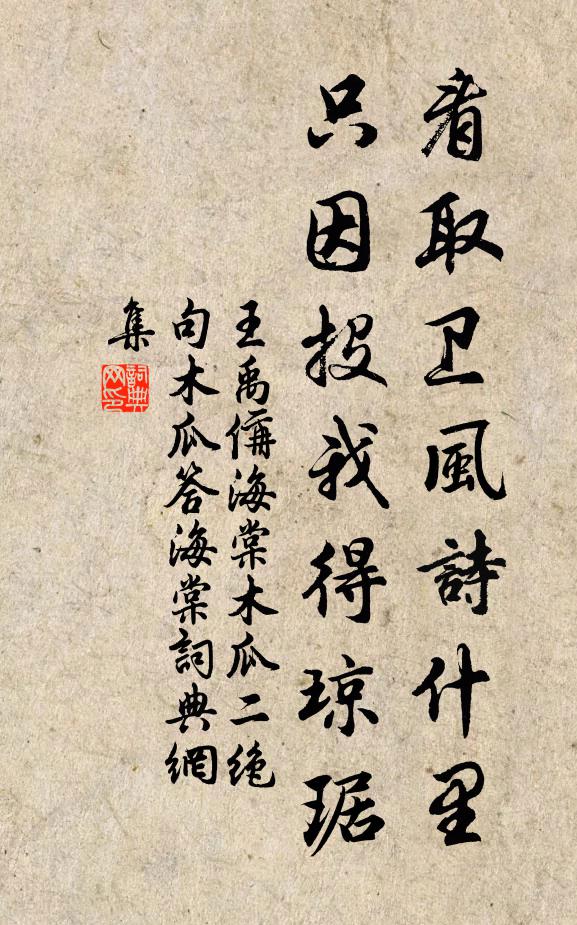 看取卫風詩什里
只因投我得琼琚
王禹偁海棠木瓜二绝
句木瓜答海棠詞典網
集
詞典
网印